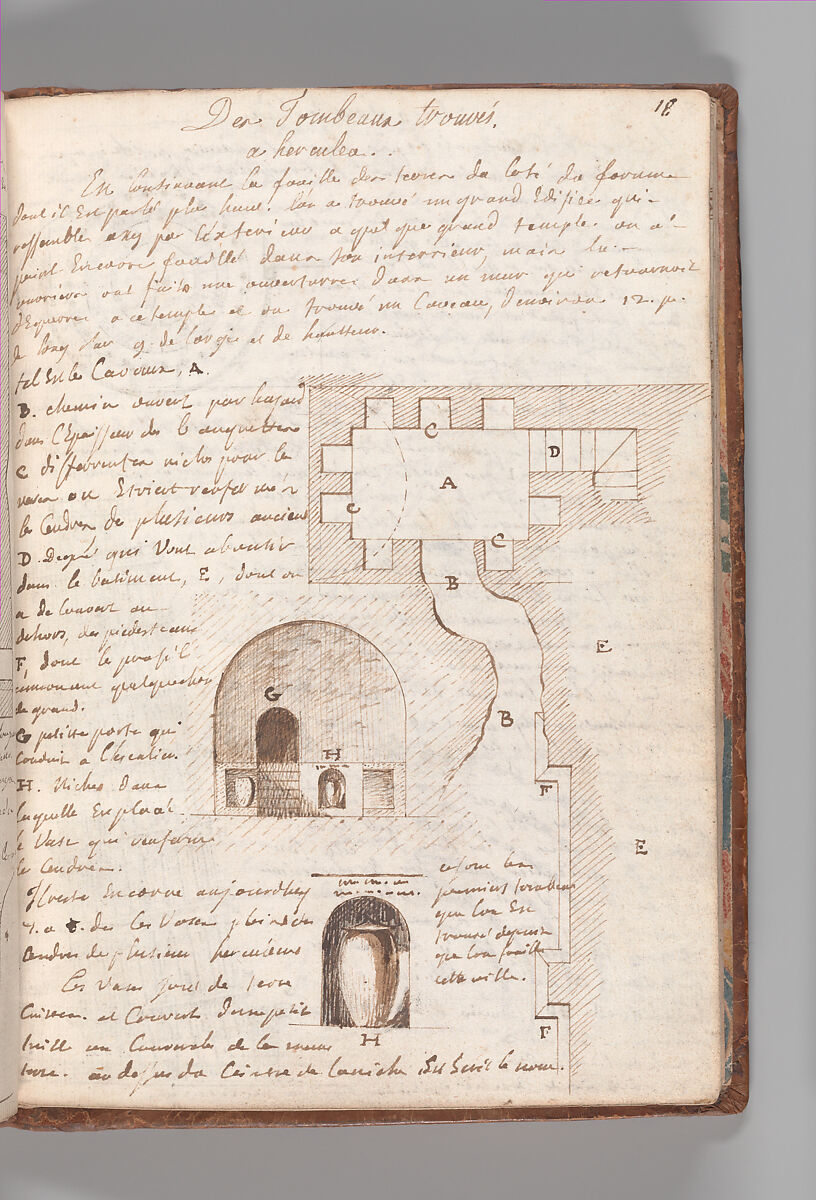 18
Des Tombeaux trouvés
a herculea.
En Continuant la fouille des terres du Coté du forum
dont il Est parlé plus haut. lon a trouvé un grand Edifice qui
ressemble assez par Lexterieur a quelque grand temple on a
point Encore fouillé dans son interrieur, mais les
ouvriers ont faits une ouverture dans un mur qui retournoit
d'Equerre a ce temple et on trouvé un Caveau, d'environ 12. p.
de long sur 9. de large et de hautteur.
tel Est le Caveaux, A.
B. chemin ouvert par hazard
dans l'Epaisseur des banquettes
C differentes niches pour les
vases ou Etoient renfermés
les Cendres de plusieurs anciens
D. Degré qui Vont aboutir
dans le batiment, E, dont on
a De Couvert au
dehors, des piedesteaux
F dont le profil
annoncent quelque chose
de grand.
G petitte porte qui
Conduit a l'Escalier.
H. Niches dans
laquelle Est placé
le Vase qui renferme
les Cendres.
Il reste Encorre aujourdhuy
7. a 8. de ces Vases pleins des
Cendres de plusieurs herculeens
Ces Vases sont de terre
Cuitte. et Couvert d'une petit
tuille en Couvercle de la meme
terre. au dessus du Ceintre de la niche Est Ecrit le nom.
ce sont les
premiers tombeaux
que lon Est
trouvé depuis
que lon fouille
cette ville.
C
A
D
C
C
B
E
B
G
H
F
E
F
H